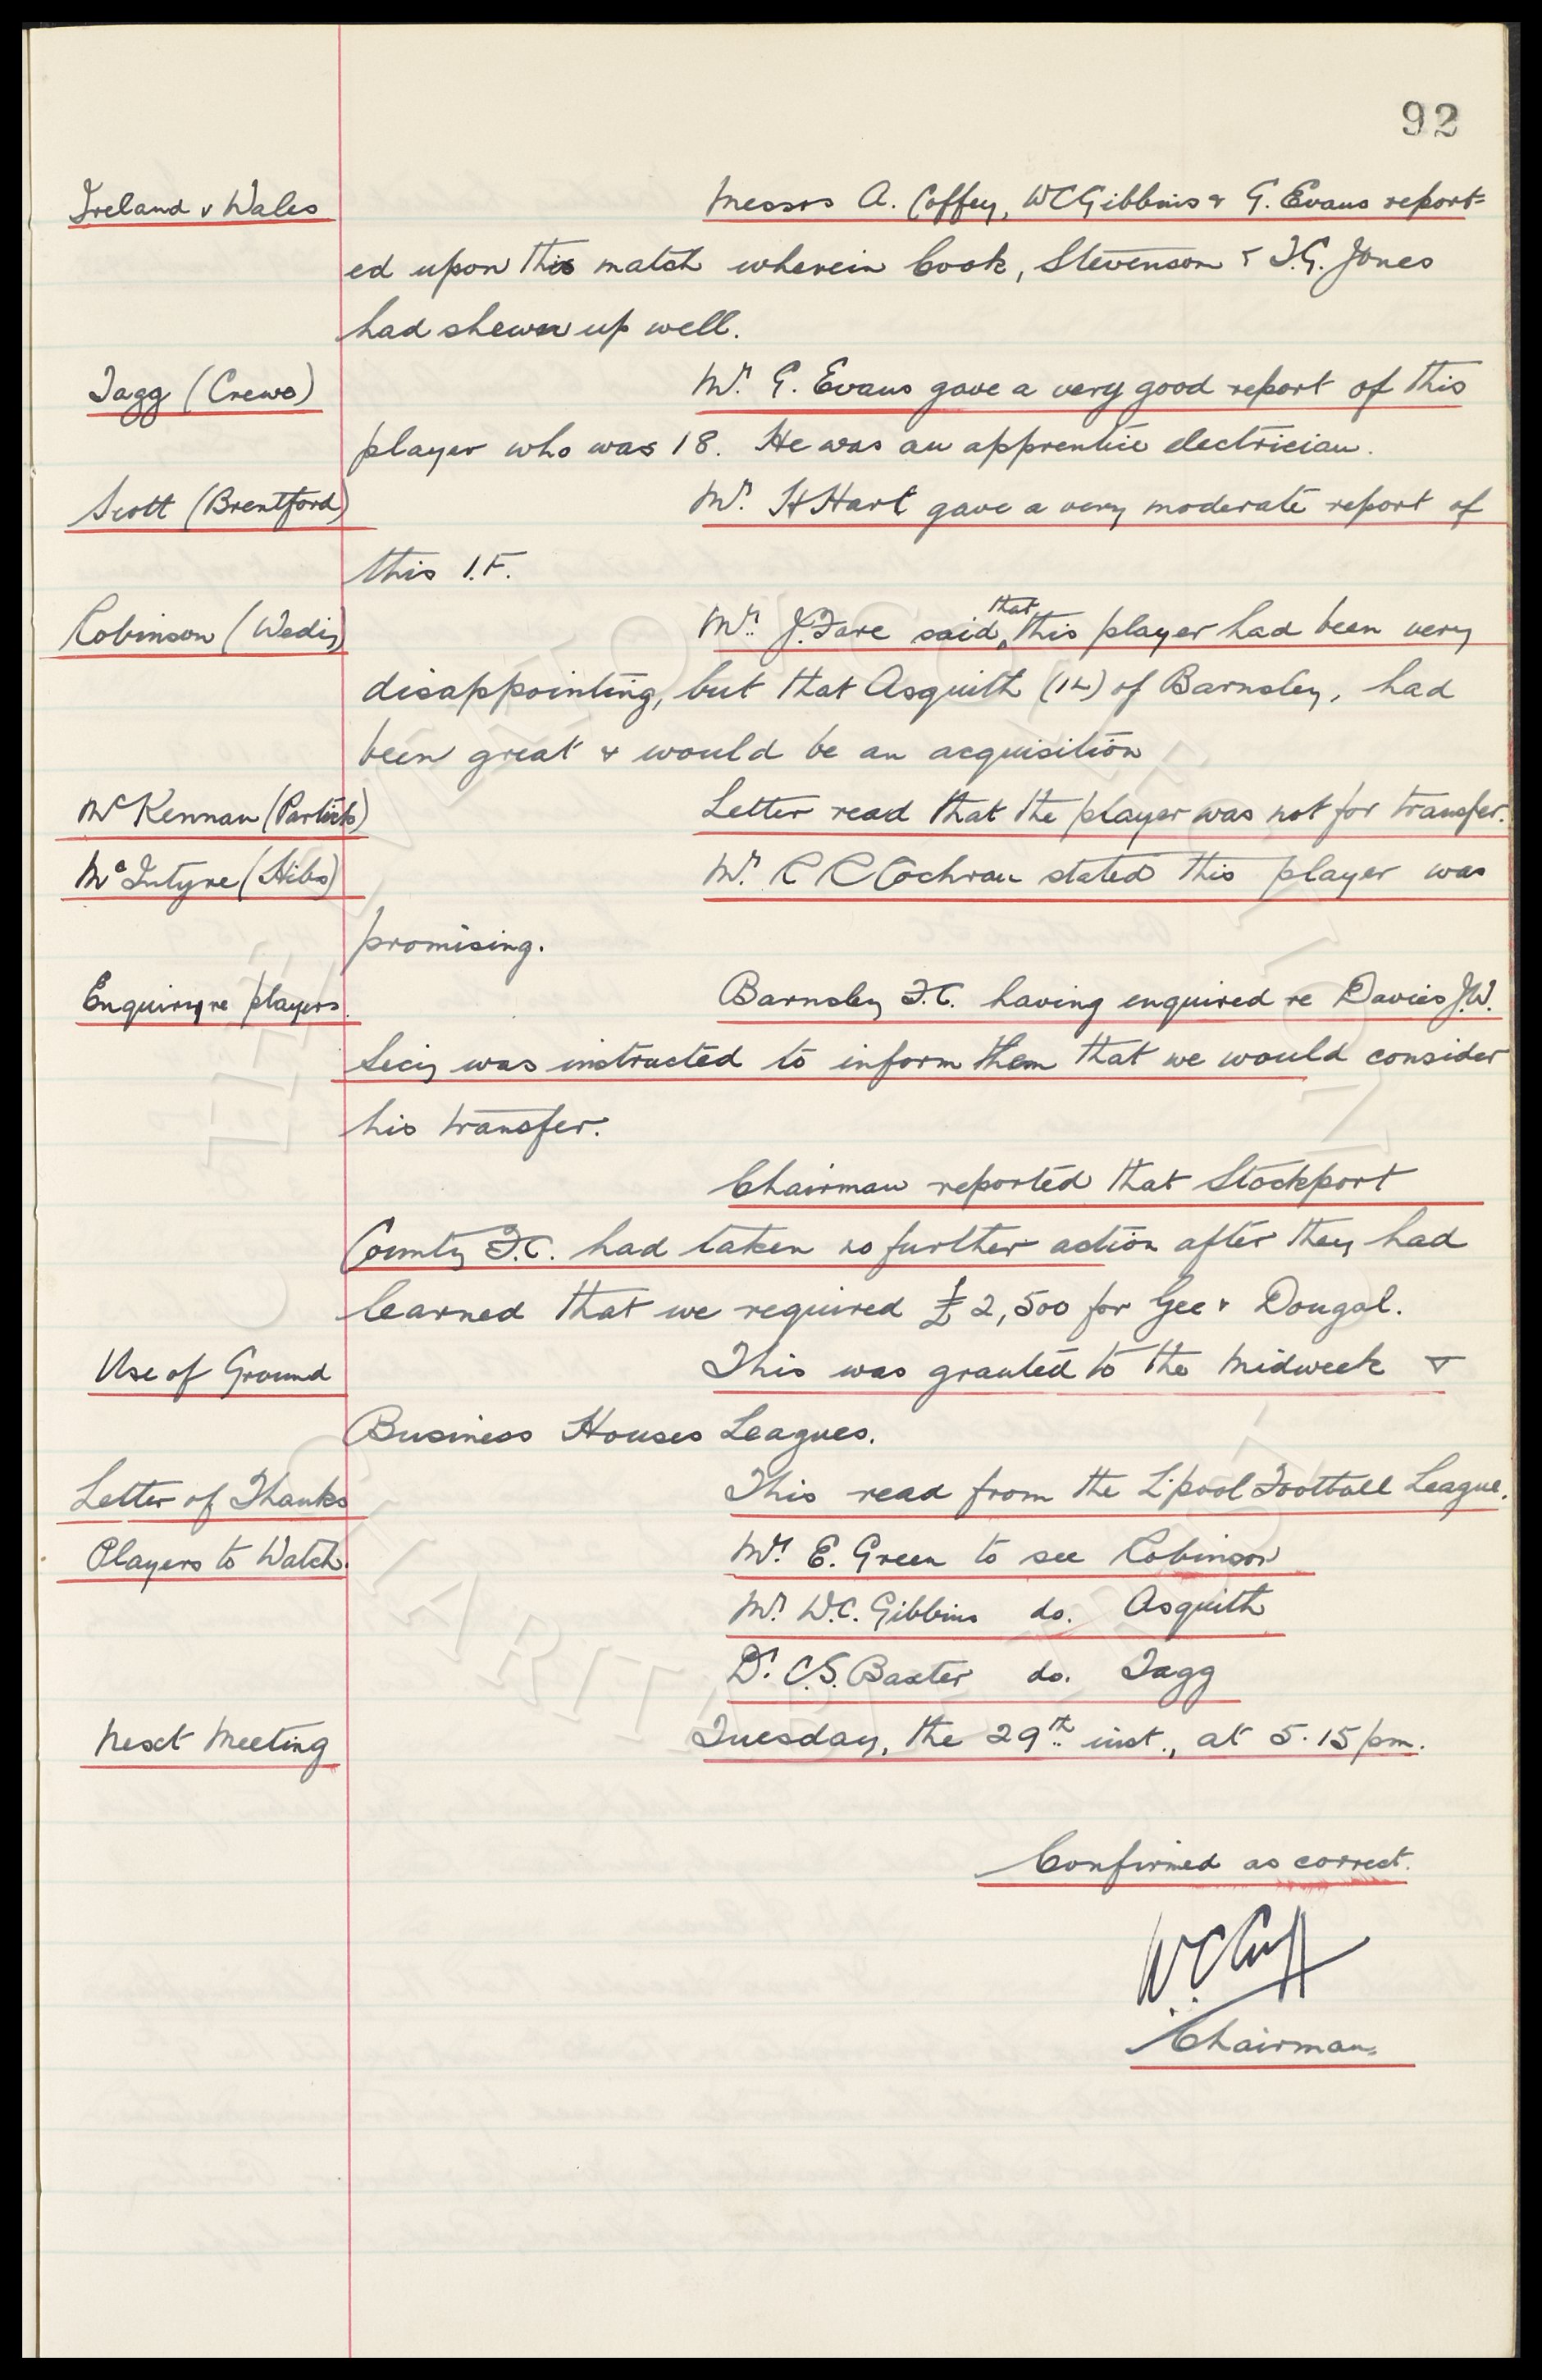 92
Ireland v Wales Messrs A. Coffey, W C Gibbins & G. Evans report-
ed upon this match wherein Cook, Stevenson & T.G. Jones
had shewn up well.
Tagg (Crewe) Mr. G. Evans gave a very good report of this
player who was 18. He was an apprentice electrician.
Scott (Brentford) Mr. H Hart gave a very moderate report of
this I.F.
Robinson (Wedy) Mr. J. Fare said that this player had been very
disappointing, but that Asquith (IL) of Barnsley, had
been great & would be an acquisition
McKennan (Partick) Letter read that the player was not for transfer.
McIntyre (Hibs) Mr. R R Cochran stated this player was
promising.
Enquiry re players. Barnsley F.C. having enquired re Davies J.W.
Secy was instructed to inform them that we would consider
his transfer.
Chairman reported that Stockport
County F.C. had taken no further action after they had
learned that we required £2,500 for Gee & Dougal.
Use of Ground This was granted to the Midweek &
Business Houses Leagues.
Letter of Thanks This read from the L'pool Football League.
Players to Watch. Mr. E. Green to see Robinson
Mr. W.C. Gibbins do. Asquith
Dr. C.S. Baxter do. Tagg
Next Meeting Tuesday, the 29th inst., at 5.15 pm.
Confirmed as correct.
W.C. Cuff
Chairman.